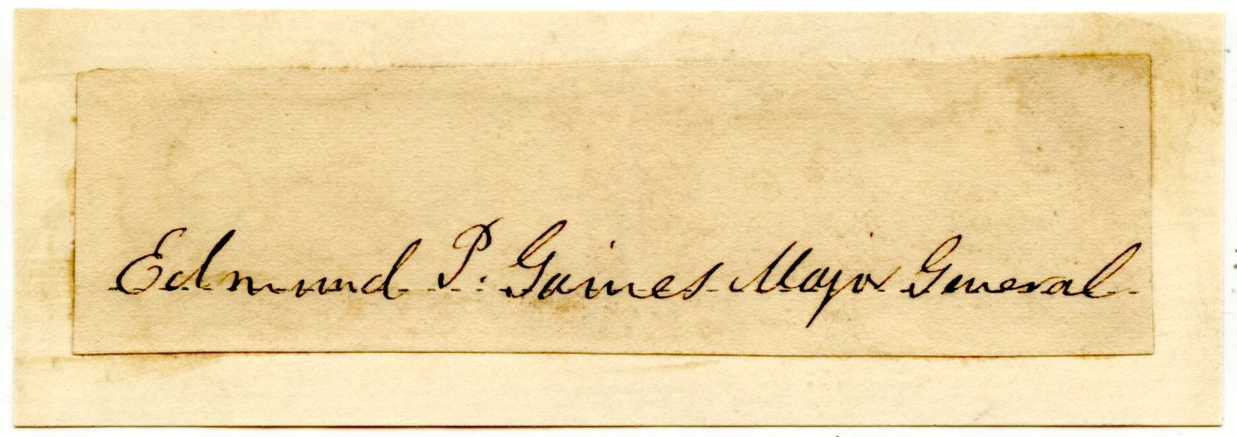 Edmund P. Gaines Major General